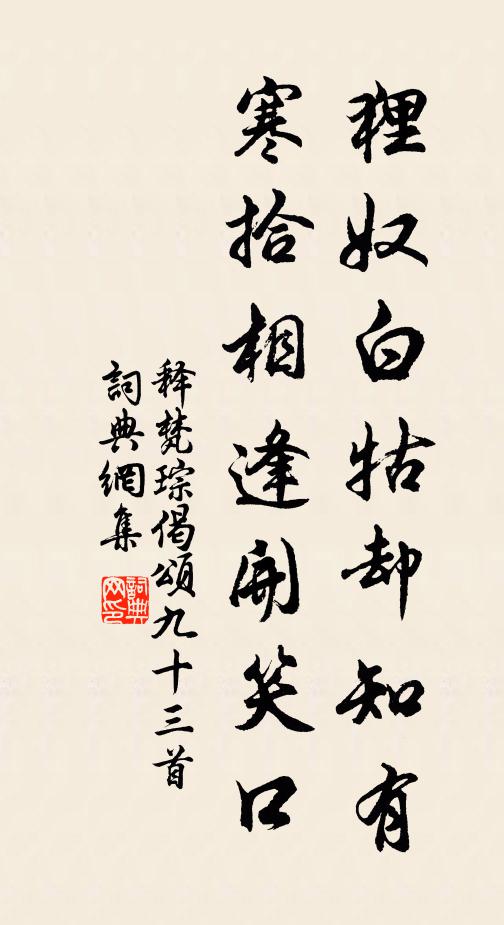 狸奴白牯却知有
寒拾相逢開笑口
释梵琮偈頌九十三首
詞典網集
詞典網印